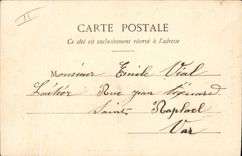 II
CARTE POSTALE
Ce côté est exclusivement réservé à l'adresse
Monsieur Emile Vial
Rue Jean
Saint Raphael
Var